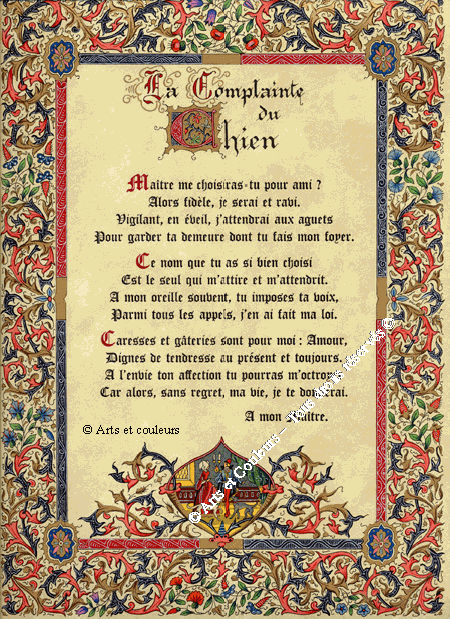 La Complainte
du
Chien
Maître me choisiras-tu pour ami ?
Alors fidèle, je serai et ravi.
Vigilant, en éveil, j'attendrai aux aguets
Pour garder ta demeure dont tu fais mon foyer.
Ce nom que tu as si bien choisi
Est le seul qui m'attire et m'attendrit.
A mon oreille souvent, tu imposes ta voix,
Parmi tous les appels, j'en ai fait ma loi.
Caresses et gâteries sont pour moi : Amour,
Dignes de tendresse au présent et toujours.
A l'envie ton affection tu pourras m'octroyer
Car alors, sans regret, ma vie, je te donnerai.
A mon Maître.
© Arts et couleurs
© Arts et Couleurs – Tous droits réservés ©